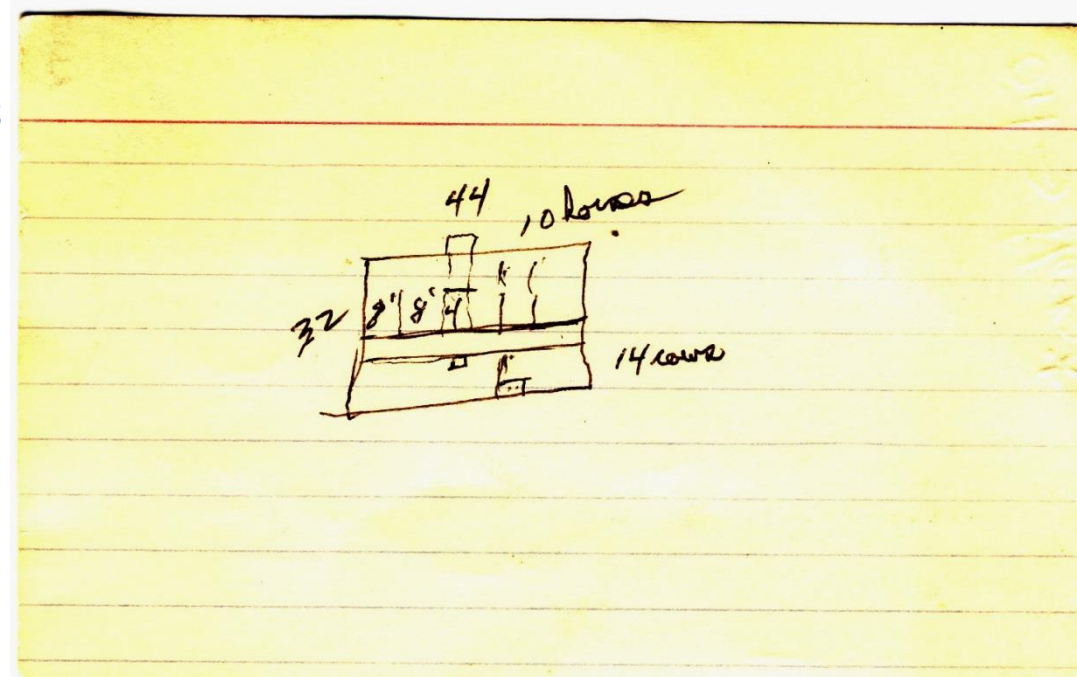 44
10 horses
32 8' 8' 4
14 cows